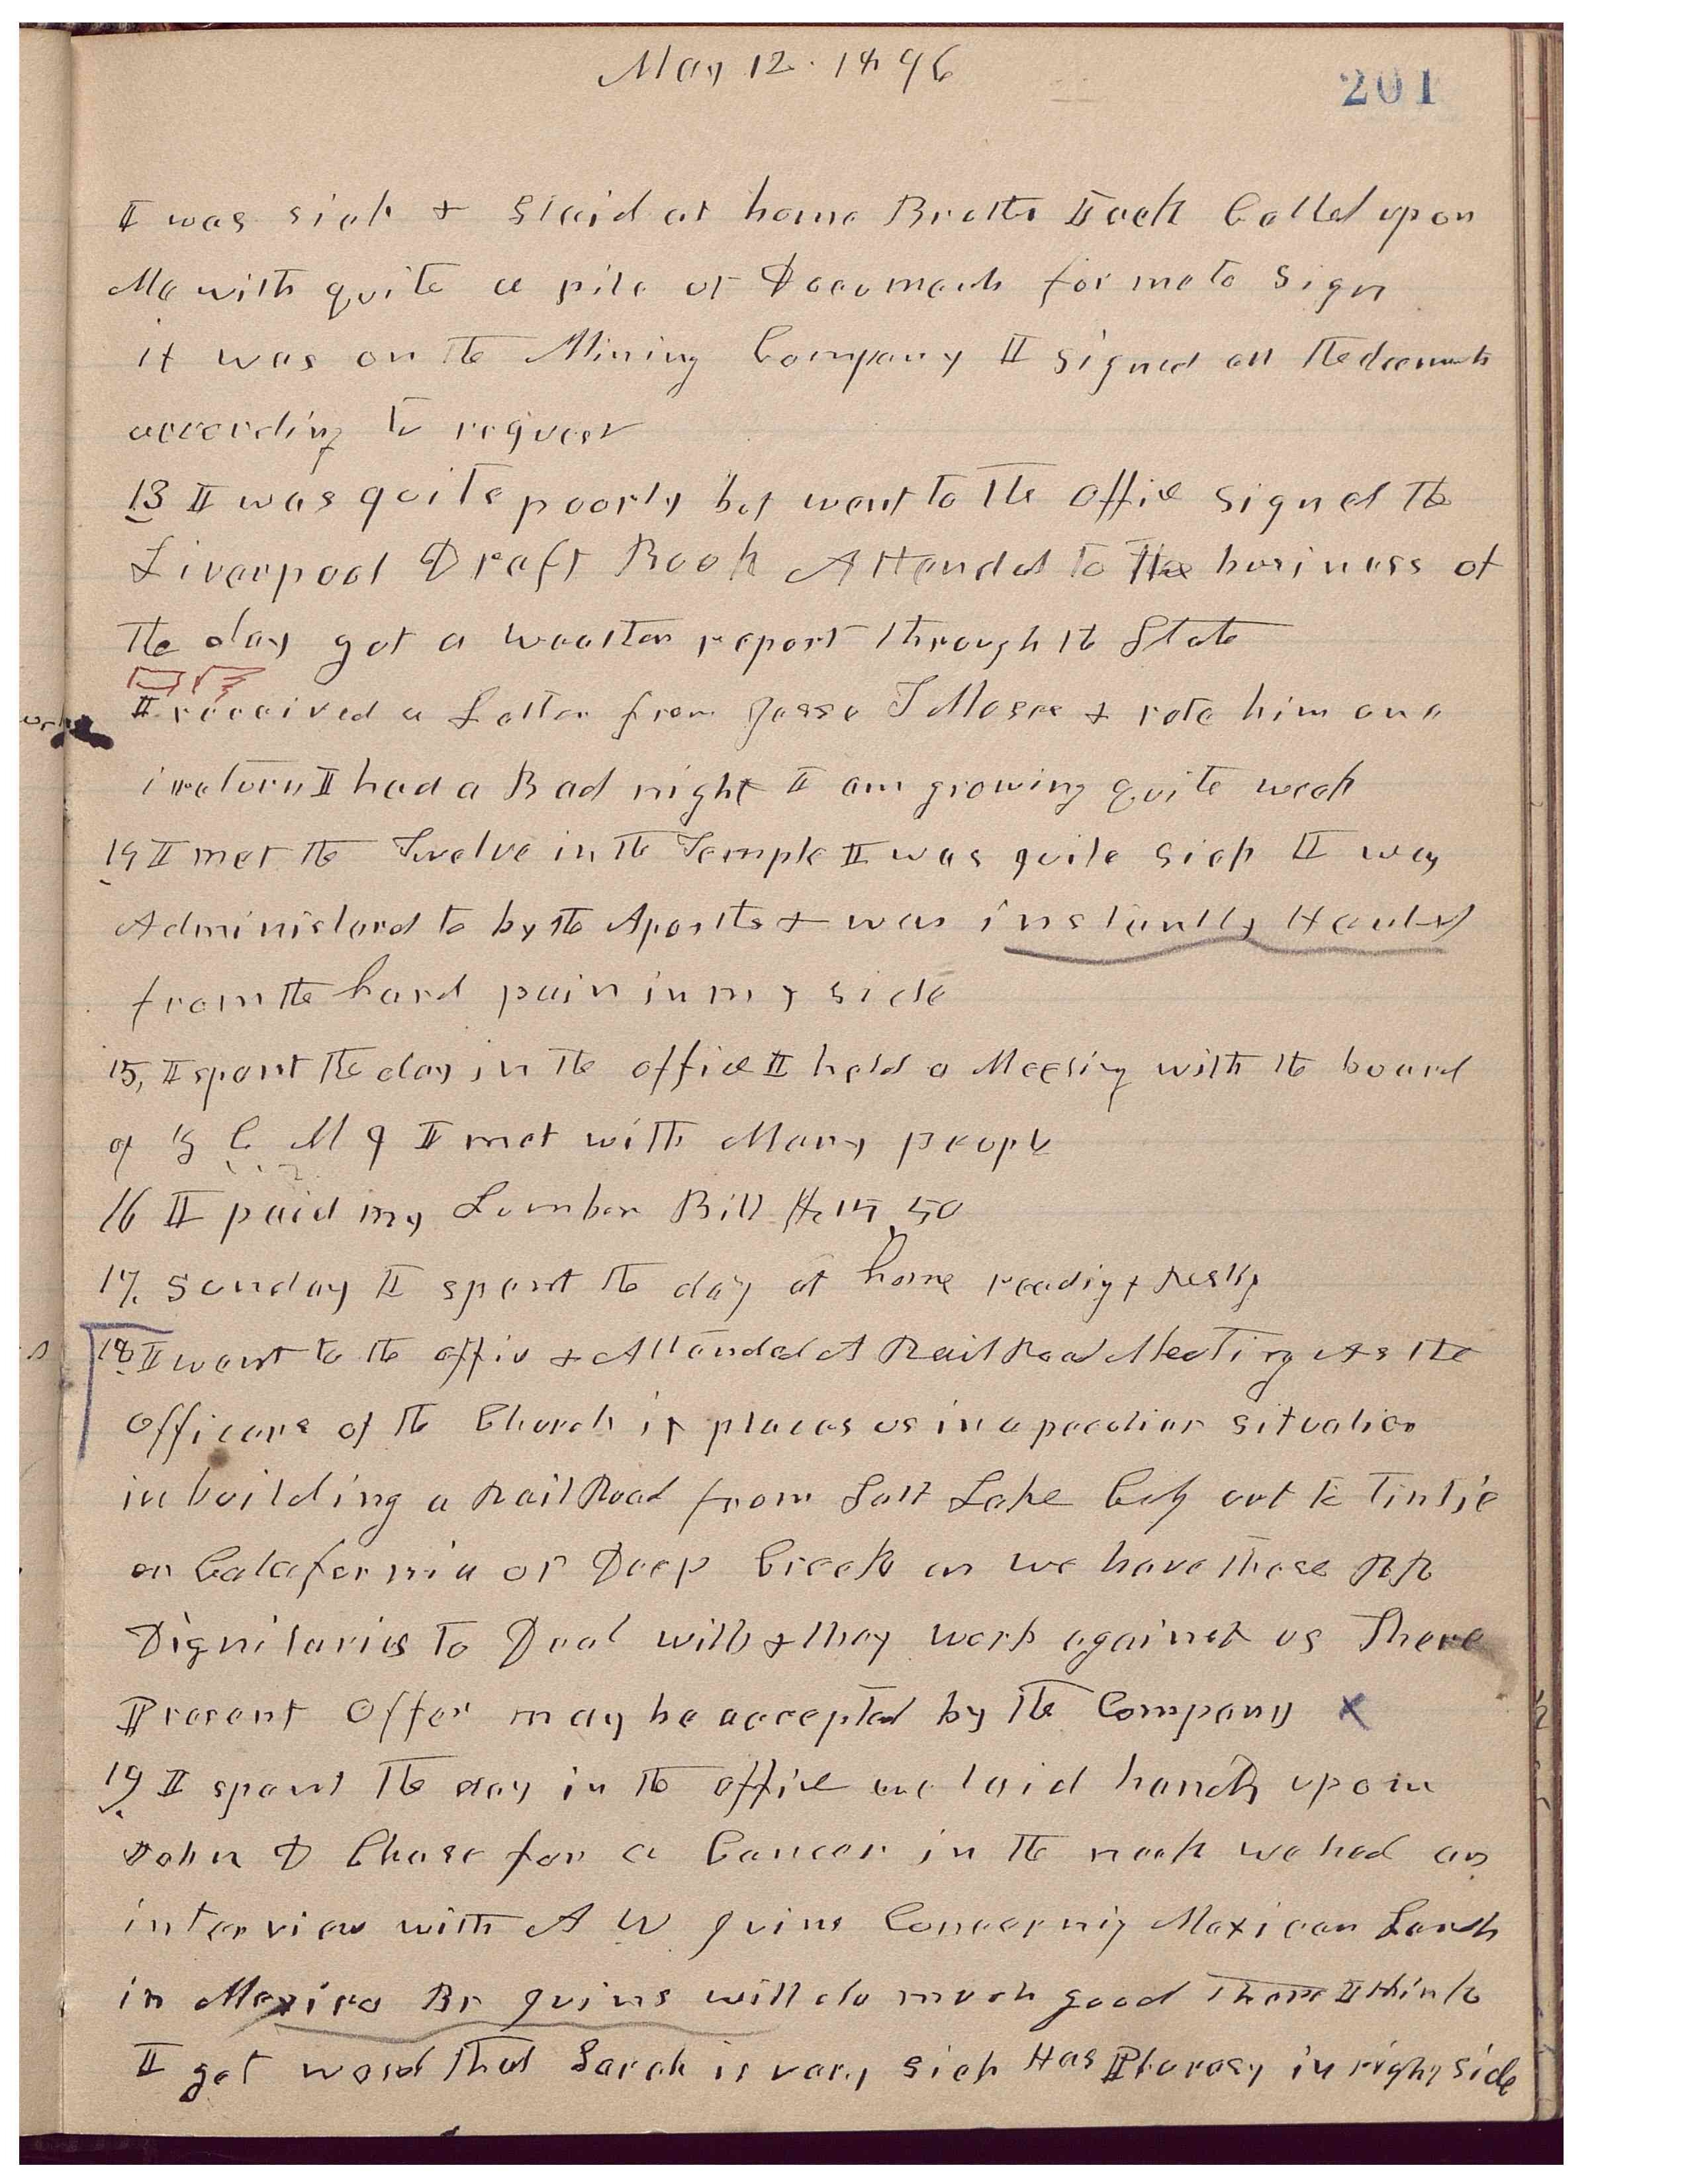 May 12. 1896
201
I was sick & Staid at home Brother Jack Called upon
Me with quite a pile of Documents for me to Sign
it was on the Mining Company I signed all the documents
according to request
13 I was quite poorly but went to the office signed the
Liverpool Draft Book Attended to the business of
the day got a weather report through the State
I received a Letter from Jesse T Moses & rote him one
in return I had a Bad night I am growing quite weak
14 I met the Twelve in the Temple I was quite sick I was
Administered to by the Apostles & was instantly Healed
from the hard pain in my side
15, I spent the day in the office I held a Meeting with the board
of Z C M I I met with Many people
16 I paid my Lumber Bill $15,50
17. Sunday I spent the day at home reading & resting
18 I went to the office & Attended A Rail Road Meeting As the
officers of the Church it places us in a peculiar situation
in building a Rail Road from Salt Lake City out to Tintic
or Calafornia or Deep Creek as we have these RR
Dignitaries to Deal with & they work against us There
Present Offer may be accepted by the Company X
19 I spent the day in the office we laid hands upon
John D Chase for a Cancer in the neck we had an
interview with A W Ivins Concerning Mexican Lands
in Mexico Br Ivins will do much good There I think
I got word that Sarah is very sick Has Plurasy in right side